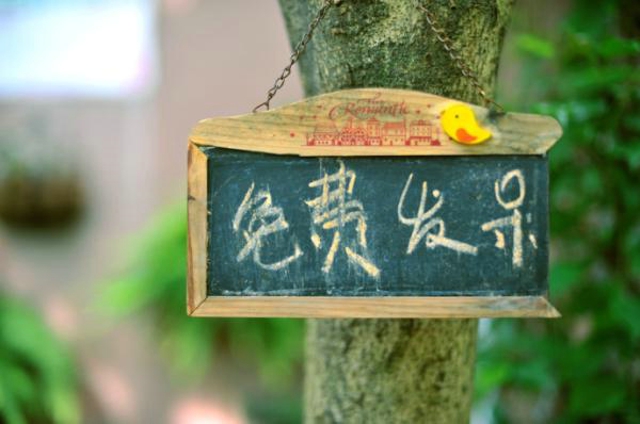 Romantic
免费发呆